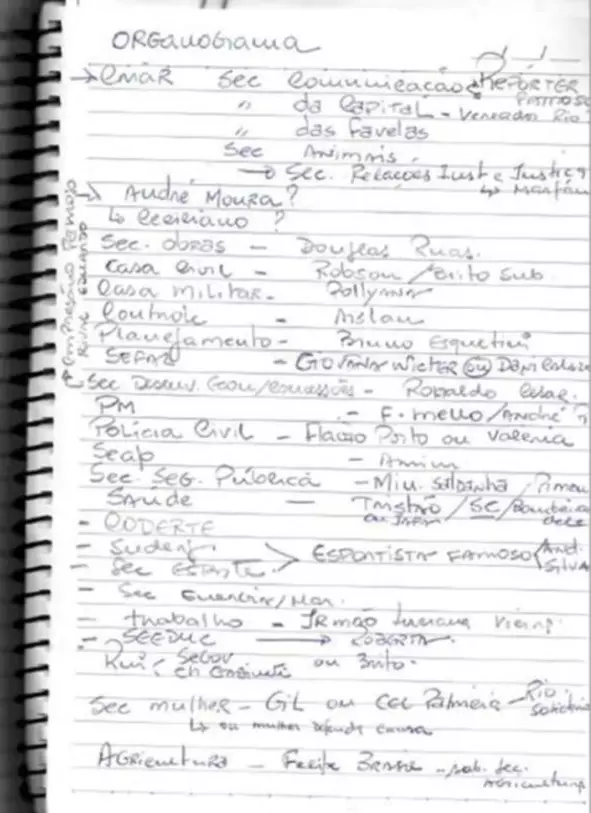 ORGANOGRAMA
→ CRIAR Sec Comunicação REPÓRTER FAMOSO
" da Capital - Vereador Rio
" das Favelas
Sec Animais.
→ Sec. Relações Inst e Justiça
↳
→ André Moura?
↳ Ceciliano ?
EMPRESÁRIO FAMOSO
Sec. obras - Douglas Ruas.
Casa Civil - Robson / Brito sub
Casa militar - Pollyana
Controle - Aslan
Planejamento - Bruno
SEFAZ - GIOVANA ou Dani
Sec Desenv. Econ/concessões - Ronaldo Cesar.
PM - F. mello / André ?
Polícia Civil - Flavio Porto ou Valeria
Seap - Amim
Sec. Seg. Pública - Min. Saldanha /
Saúde - Tristão / SC / Bombeiro
ou
- CODERTE
- Suderj
- Sec Esporte > ESPORTISTA FAMOSO / And. SILVA
- Sec Energia/Mar.
- trabalho - IRmão Luciana Vieira
- SEEDUC → ROBERTA.
Rui < SEGOV ou Brito.
Ch Gabinete
Sec mulher - Gil ou Cel Palmeira - Rio Solidário
↳ ou mulher defende causa
Agricultura - Felipe - sub. sec. Agricultura